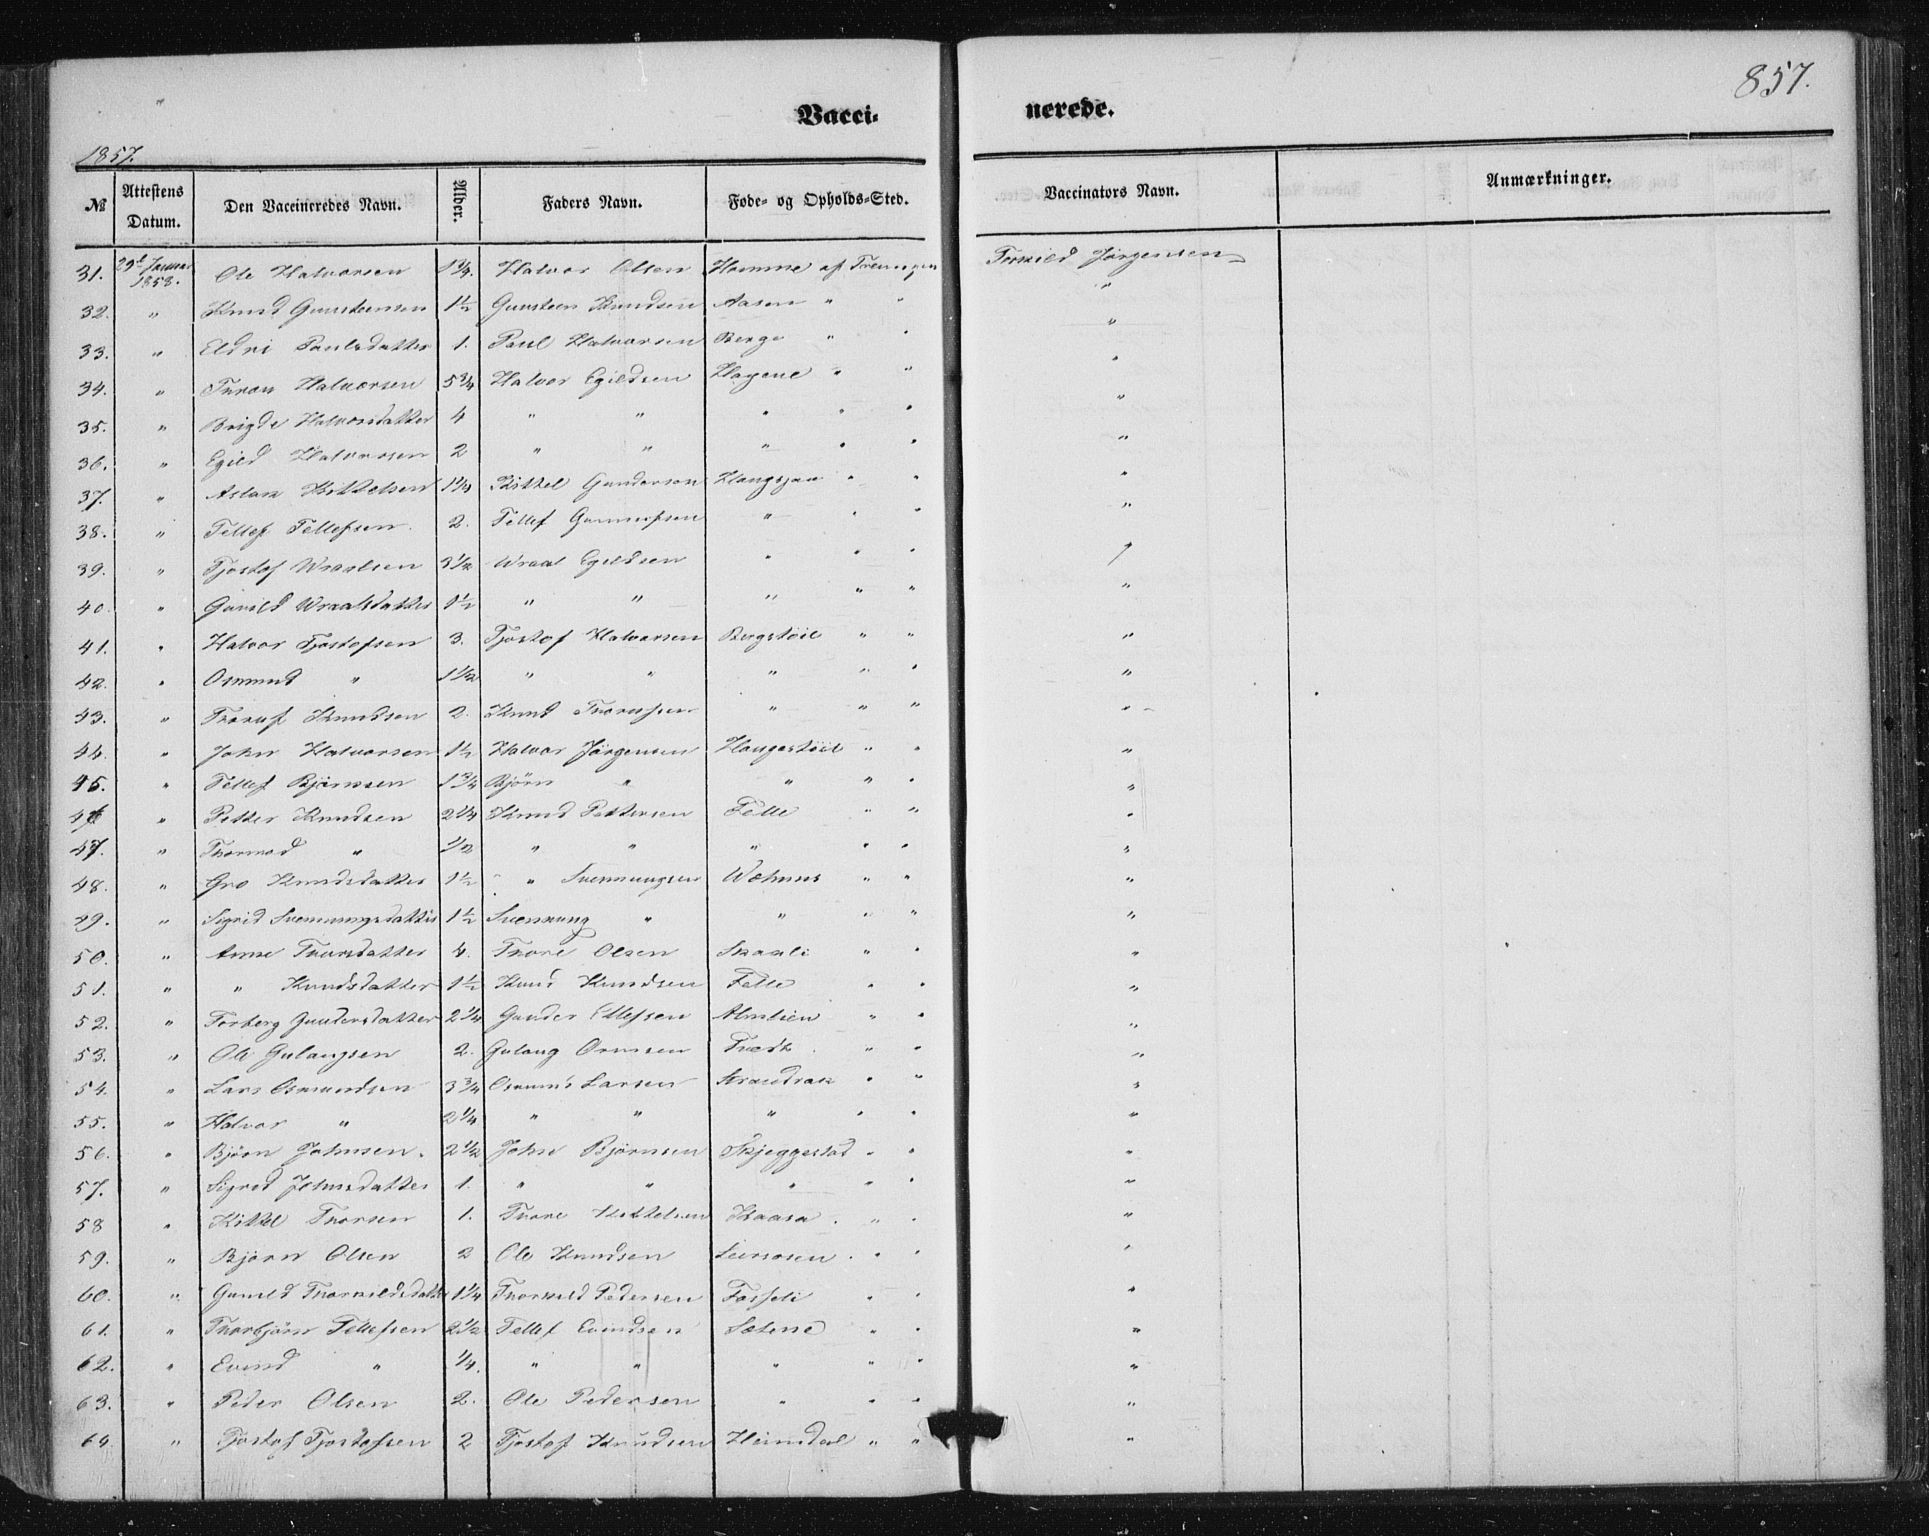 857.
Vacci- nerede.
1857.
№ Attestens Datum. Den Vaccineredes Navn. Alder. Faders Navn. Føde- og Opholds-Sted. Vaccinators Navn. Anmærkninger.
31. 29de Januar 1858. Ole Halvorsen 1 3/4. Halvor Olsen Homme af Treungen Torkild Jørgensen
32. " Knud Gunsteensen 1 1/2 Gunsteen Knudsen Aasen " " "
33. " Eldri Paulsdatter 1. Paul Halvorsen Berge " " "
34. " Halvorsen 5 3/4 Halvor Egildsen Hagene " " "
35. " Brigde Halvorsdatter 4 " " " " " "
36. " Egild Halvorsen 2 " " " " " "
37. " Aslak Kittelsen 1 1/4 Kittel Gunderson Haugsjaa " " "
38. " Tellef Tellefsen 2. Tellef " " " "
39. " Tjostof Wraalsen 3 1/2 Wraal Egildsen " " " "
40. " Gunild Wraalsdatter 1 1/2 " " " " " "
41. " Halvor Tjostofsen 3. Tjostof Halvorsen Bergstøil " " "
42. " Osmund " 1 1/2 " " " " " "
43. " Knudsen 2. Knud " " " "
44. " John Halvorsen 1 1/2 Halvor Jørgensen Haugestøil " " "
45. " Tellef Bjørnsen 1 3/4 Bjørn " " " " "
46 " Petter Knudsen 2 1/4 Knud Pettersen Felle " " "
47. " Thormod " 1/2 " " " " " "
48. " Gro Knudsdatter 1 1/2 " Svennungsen " " "
29. " Sigrid Svennungsdatter 1 1/2 Svennung " " " " "
50. " Anne Thorsdatter 4. Thore Olsen Skaali " " "
51. " " Knudsdatter 1 1/2 Knud Knudsen Felle " " "
52. " Torberg Gundersdatter 2 1/4 Gunder Ellefsen Almlien " " "
53. " Ole Gulaugsen 2. Gulaug Ormsen Tveit " " "
54. " Lars Osmundsen 3 3/4 Osmund Larsen " " "
55. " Halvor " 2 1/4 " " " " " "
56. " Bjørn Johnsen. 2 1/2 John Bjørnsen Skjeggestad " " "
57. " Sigrid Johnsdatter 1. " " " " " "
58 " Kittel Thorsen 1. Thore Kittelsen Kaasa " " "
59. " Bjørn Olsen 2 Ole Knudsen " " "
60. " Gunild Thorkildsdatter 1 1/4 Thorkild Pedersen Fosseli " " "
61. " Thorbjørn Tellefsen 2 1/2 Tellef Evindsen " " "
62. " Evind " 1/4. " " " " " "
63. " Peder Olsen 2. Ole Pedersen " " " "
64 " Tjostof Tjostofsen 2 Tjostof Knudsen Heimdal " " "